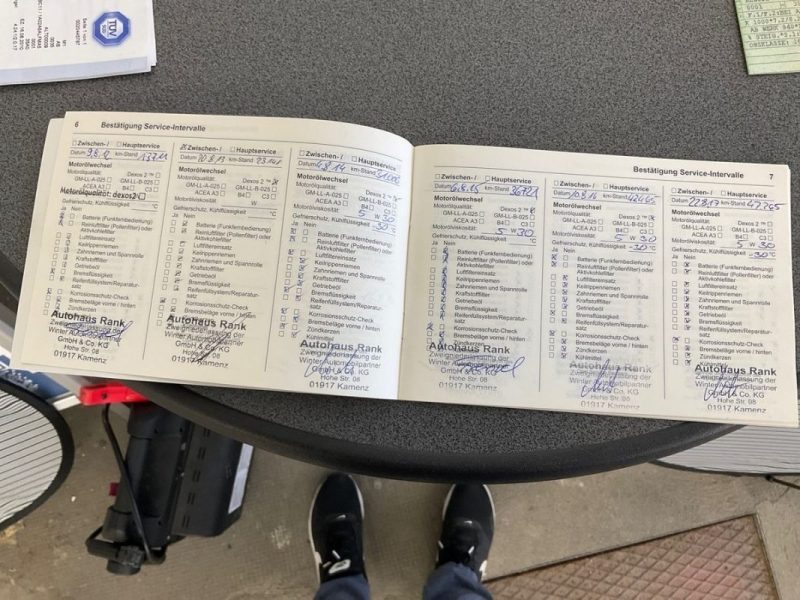 TÜV
6 Bestätigung Service-Intervalle
Zwischen-/ Hauptservice
Datum 9.8.12 km-Stand 13711
Motorölwechsel
Motorölqualität: Dexos 2 ™
GM-LL-A-025 GM-LL-B-025
ACEA A3 B4 C3
Motorölqualität: dexos2
Gefrierschutz, Kühlflüssigkeit
Ja Nein
Batterie (Funkfernbedienung)
Reinluftfilter (Pollenfilter) oder
Aktivkohlefilter
Luftfiltereinsatz
Keilrippenriemen
Zahnriemen und Spannrolle
Kraftstofffilter
Getriebeöl
Bremsflüssigkeit
Reifenfüllsystem/Reparatur-
satz
Korrosionsschutz-Check
Autohaus Rank
GmbH & Co. KG
Hohe Str. 08
01917 Kamenz
Zwischen-/ Hauptservice
Datum 20.8.13 km-Stand
Motorölwechsel
Motorölqualität: Dexos 2 ™
GM-LL-A-025 GM-LL-B-025
ACEA A3 B4 C3
Motorölviskosität: W
Gefrierschutz, Kühlflüssigkeit
Ja Nein °C
Batterie (Funkfernbedienung)
Reinluftfilter (Pollenfilter) oder
Aktivkohlefilter
Luftfiltereinsatz
Keilrippenriemen
Zahnriemen und Spannrolle
Kraftstofffilter
Getriebeöl
Bremsflüssigkeit
Reifenfüllsystem/Reparatur-
satz
Korrosionsschutz-Check
Bremsbeläge vorne / hinten
Autohaus Rank
GmbH & Co. KG
Hohe Str. 08
01917 Kamenz
Zwischen-/ Hauptservice
Datum 4.8.14 km-Stand
Motorölwechsel
Motorölqualität: Dexos 2 ™
GM-LL-A-025 GM-LL-B-025
ACEA A3 B4 C3
Motorölviskosität: 5 W 30
Gefrierschutz, Kühlflüssigkeit -30 °C
Ja Nein
Batterie (Funkfernbedienung)
Reinluftfilter (Pollenfilter) oder
Aktivkohlefilter
Luftfiltereinsatz
Keilrippenriemen
Zahnriemen und Spannrolle
Kraftstofffilter
Getriebeöl
Bremsflüssigkeit
Reifenfüllsystem/Reparatur-
satz
Korrosionsschutz-Check
Bremsbeläge vorne / hinten
Zündkerzen
Kühlmittel
Autohaus Rank
Zweigniederlassung der
Winter Automobilpartner
GmbH & Co. KG
Hohe Str. 08
01917 Kamenz
Bestätigung Service-Intervalle 7
Zwischen-/ Hauptservice
Datum 6.8.15 km-Stand 36721
Motorölwechsel
Motorölqualität: Dexos 2 ™
GM-LL-A-025 GM-LL-B-025
ACEA A3 B4 C3
Motorölviskosität: 5 W 30
Gefrierschutz, Kühlflüssigkeit °C
Ja Nein
Batterie (Funkfernbedienung)
Reinluftfilter (Pollenfilter) oder
Aktivkohlefilter
Luftfiltereinsatz
Keilrippenriemen
Zahnriemen und Spannrolle
Kraftstofffilter
Getriebeöl
Bremsflüssigkeit
Reifenfüllsystem/Reparatur-
satz
Korrosionsschutz-Check
Bremsbeläge vorne / hinten
Zündkerzen
Kühlmittel
Autohaus Rank
Zweigniederlassung der
Winter Automobilpartner
GmbH & Co. KG
Hohe Str. 08
01917 Kamenz
Zwischen-/ Hauptservice
Datum km-Stand
Motorölwechsel
Motorölqualität: Dexos 2 ™
GM-LL-A-025 GM-LL-B-025
ACEA A3 B4 C3
Motorölviskosität: 5 W 30
Gefrierschutz, Kühlflüssigkeit -30 °C
Ja Nein
Batterie (Funkfernbedienung)
Reinluftfilter (Pollenfilter) oder
Aktivkohlefilter
Luftfiltereinsatz
Keilrippenriemen
Zahnriemen und Spannrolle
Kraftstofffilter
Getriebeöl
Bremsflüssigkeit
Reifenfüllsystem/Reparatur-
satz
Korrosionsschutz-Check
Bremsbeläge vorne / hinten
Zündkerzen
Kühlmittel
Autohaus Rank
Zweigniederlassung der
Winter Automobilpartner
GmbH & Co. KG
Hohe Str. 08
01917 Kamenz
Zwischen-/ Hauptservice
Datum 22.8.17 km-Stand 47265
Motorölwechsel
Motorölqualität: Dexos 2 ™
GM-LL-A-025 GM-LL-B-025
ACEA A3 B4 C3
Motorölviskosität: 5 W 30
Gefrierschutz, Kühlflüssigkeit -30 °C
Ja Nein
Batterie (Funkfernbedienung)
Reinluftfilter (Pollenfilter) oder
Aktivkohlefilter
Luftfiltereinsatz
Keilrippenriemen
Zahnriemen und Spannrolle
Kraftstofffilter
Getriebeöl
Bremsflüssigkeit
Reifenfüllsystem/Reparatur-
satz
Korrosionsschutz-Check
Bremsbeläge vorne / hinten
Zündkerzen
Autohaus Rank
Zweigniederlassung der
Winter Automobilpartner
GmbH & Co. KG
Hohe Str. 08
01917 Kamenz